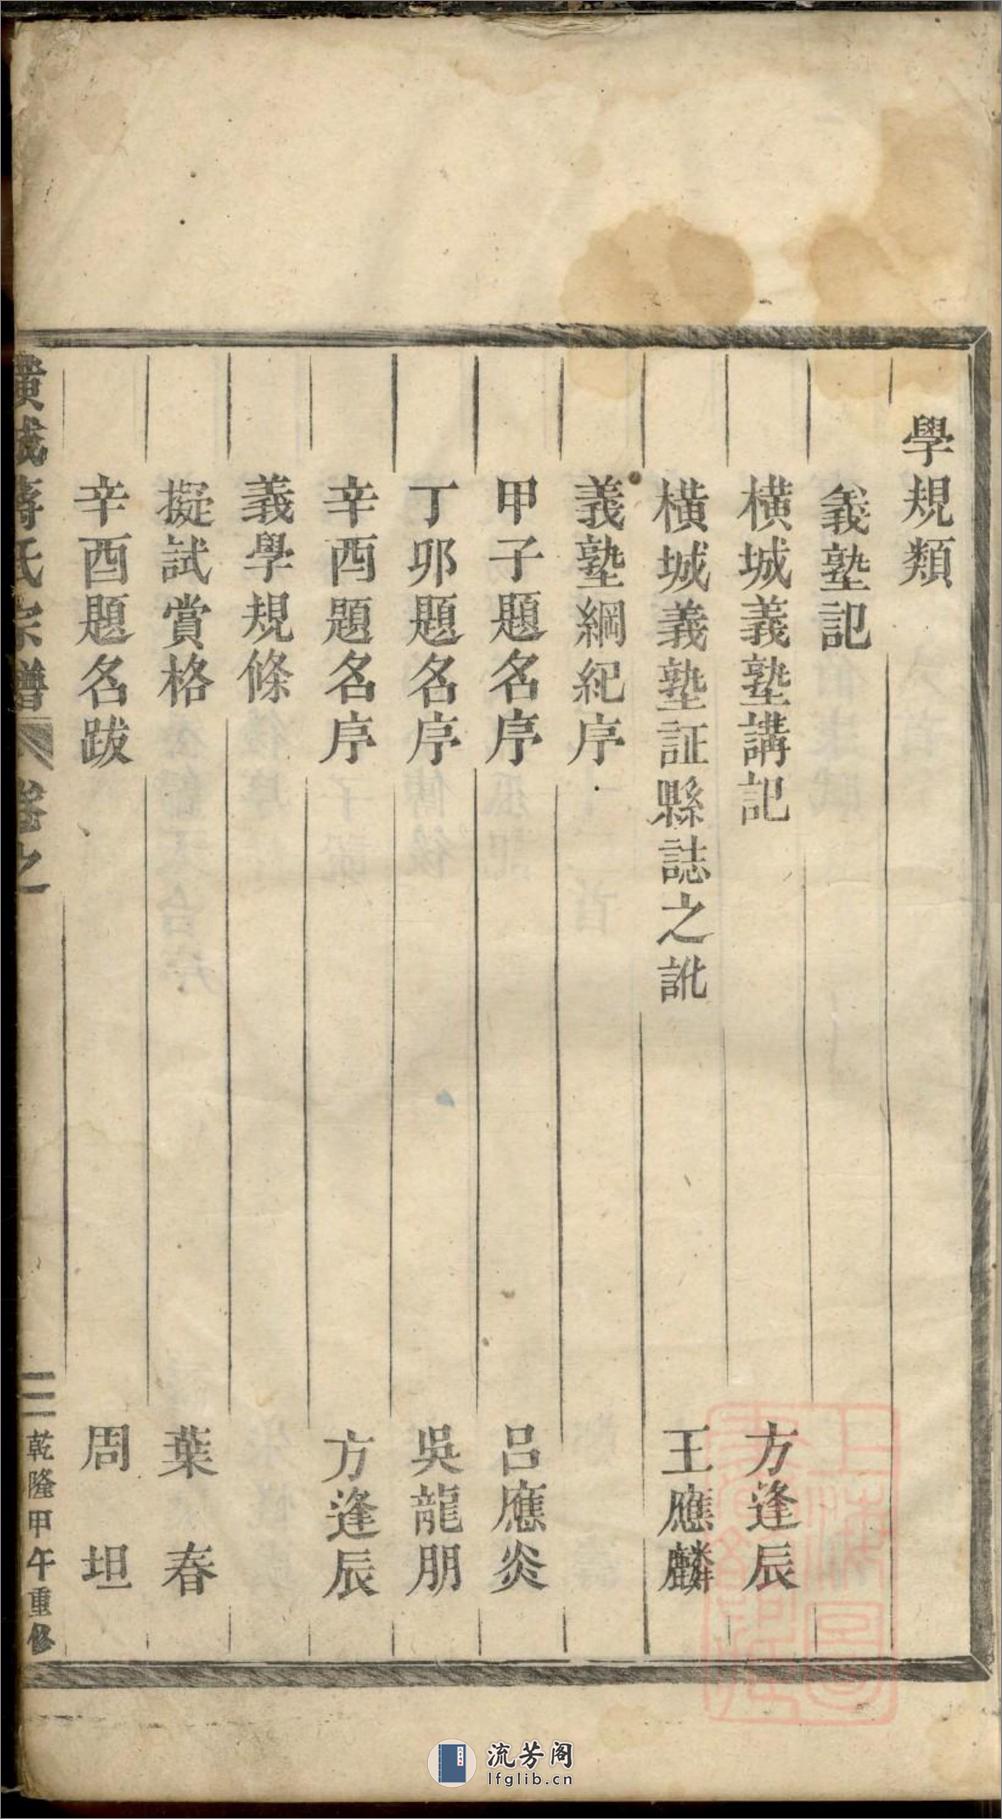 學規類
義塾記
橫城義塾講記 方逢辰
橫城義塾証縣誌之訛 王應麟
義塾綱紀序
甲子題名序 呂應炎
丁卯題名序 吳龍朋
辛酉題名序 方逢辰
義學規條
擬試賞格 葉春
辛酉題名跋 周坦
橫城蔣氏宗譜 卷之 二 乾隆甲午重修
流芳阁
lfglib.cn